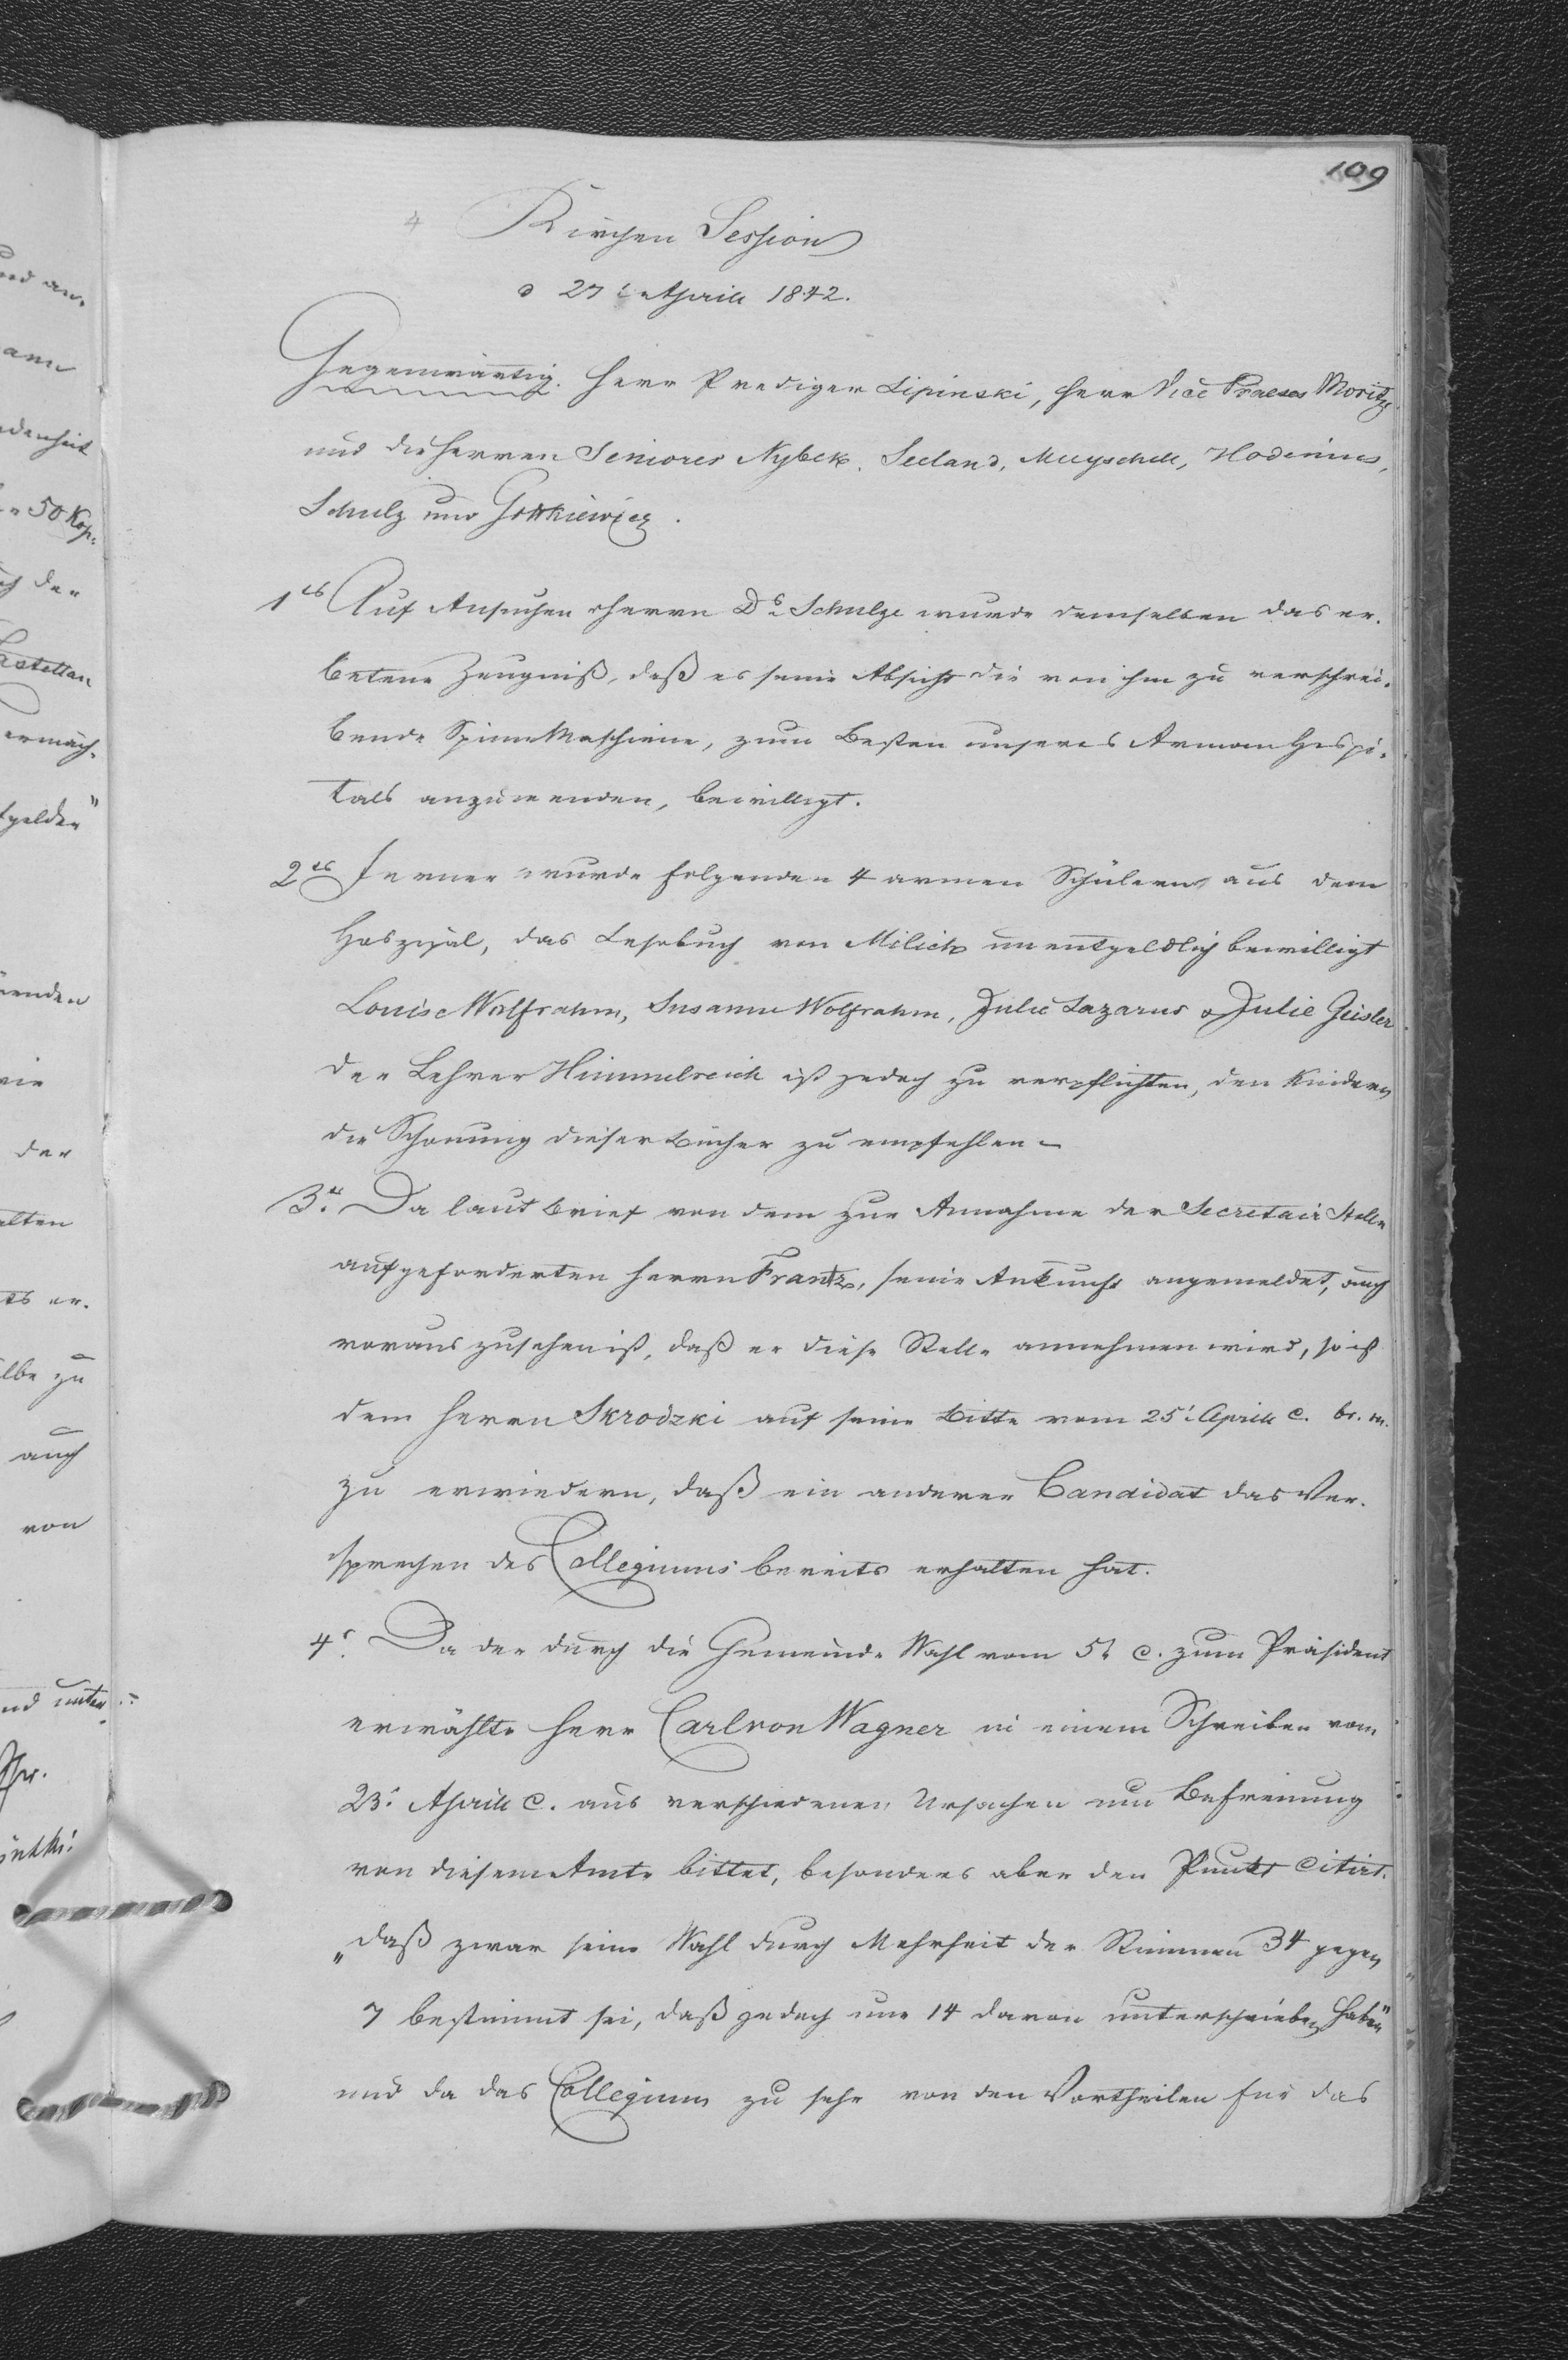 109
Kirchen Session
d 27t Aprill 1842.
Gegenwärtig. Herr Prediger Lipinski, Herr Vice Praeses Moritz
und die Herren Seniores Nybek, Seeland, Meyschell, Hodenius,
Schulz und Gottkiewicz.
1tes Auf Ansuchen Herrn Dr Schulze wurde demselben das er-
betene Zeugniß, daß es seine Absicht die von ihm zu verschrei-
bende Spinn Maschiene, zum Besten unseres Armen Hospi-
tals anzuwenden, bewilligt.
2tes Ferner wurde folgenden 4 armen Schülern aus dem
Hospital, das Lesebuch von Milich unentgeldlich bewilligt
Louise Wolfrahm, Susanne Wolfrahm, Julie Lazarus & Julie Geisler
der Lehrer Himmelreich ist jedoch zu verpflichten, den Kindern
die Schonung dieser Bücher zu empfehlen –
3tes Da laut Brief von dem zur Annahme der Secretair Stelle
aufgeforderten Herrn Frantz, seine Ankunft angemeldet, auch
voraus zusehen ist, daß er diese Stelle annehmen wird, so ist
dem Herrn Skrodzki auf seine Bitte vom 25t Aprill c. br. m.
zu erwiedern, daß ein anderer Candidat das Ver-
sprechen des Collegiums bereits erhalten hat.
4t. Da der durch die Gemeinde Wahl vom 5t c. zum Präsident
erwählte Herr Carl von Wagner in einem Schreiben vom
23t Aprill c. aus verschiedenen Ursachen um Befreiung
von diesem Amte bittet, besonders aber den Punkt citirt.
„daß zwar seine Wahl durch Mehrheit der Stimmen 34 gegen
7 bestimmt sei, daß jedoch nur 14 davon unterschrieben haben"
und da das Collegium zu sehr von den Vortheilen für das